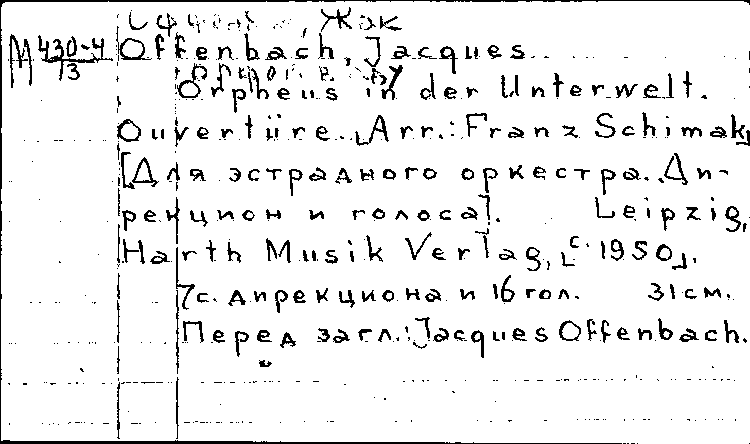 Оффенбах, Жак
М 430-4/13
Offenbach, Jacques
Orpheus in der Unterwelt.
Ouvertüre. [Arr.: Franz Schimak]
[Для эстрадного оркестра. Ди-
рекцион и голоса]. Leipzig,
Harth Musik Verlag, [c. 1950].
7с. дирекциона и 16 гол. 31 см.
Перед загл.: Jacques Offenbach.